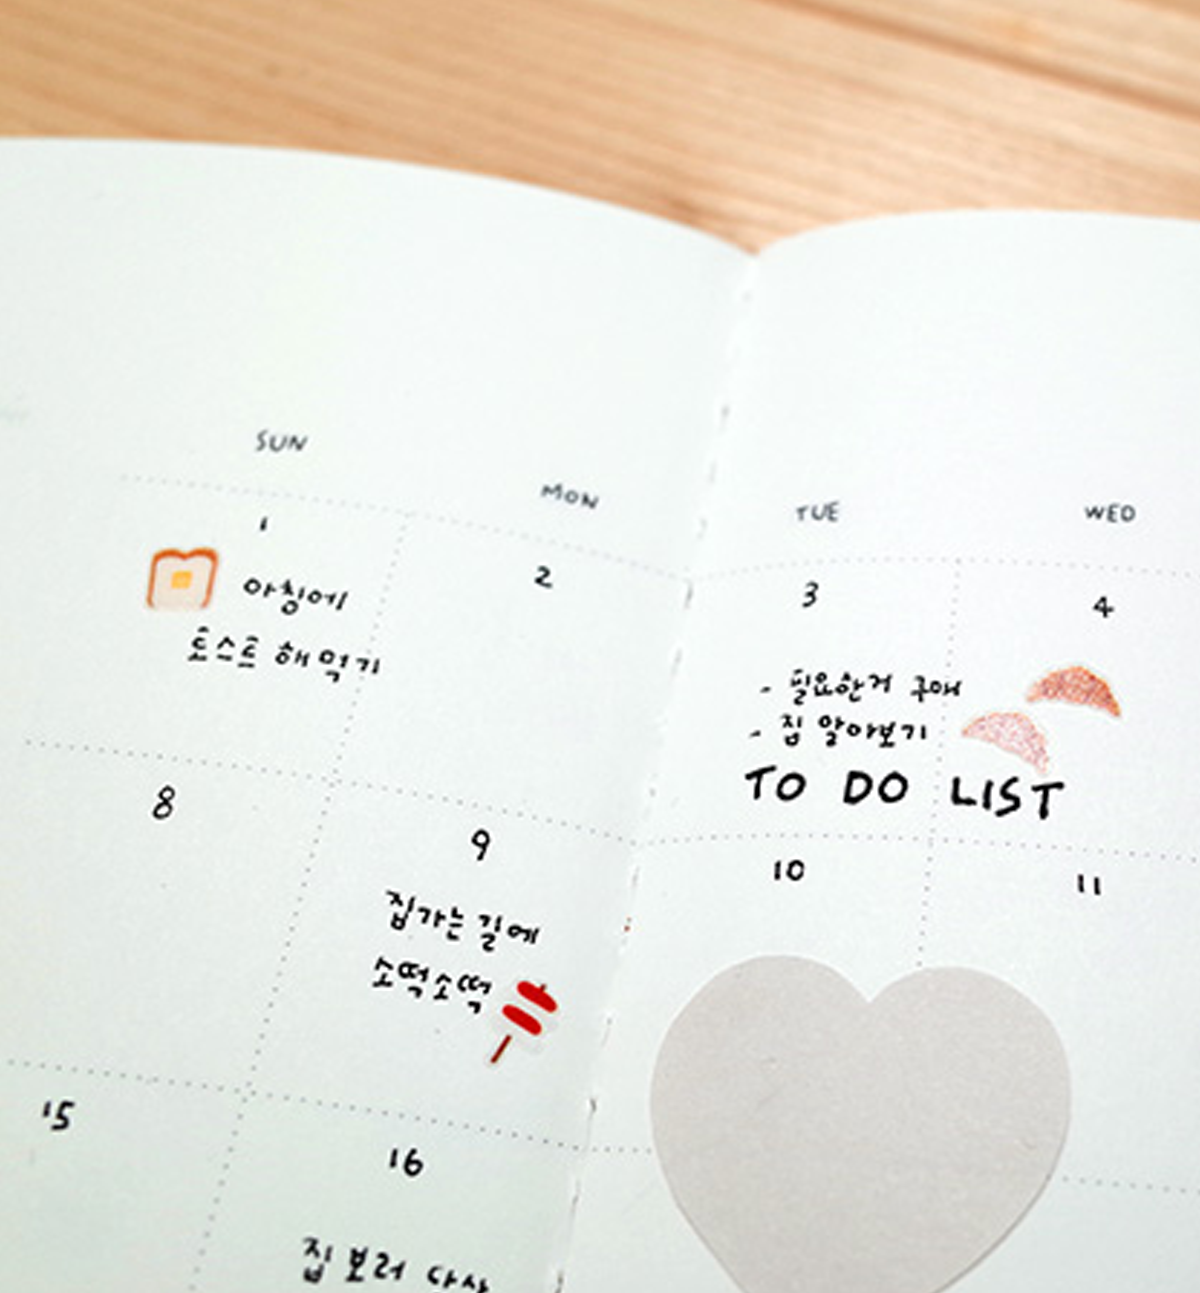 SUN
MON
TUE
WED
1
아침에
토스트 해 먹기
2
3
- 필요한거 구매
- 집 알아보기
TO DO LIST
4
8
9
집가는 길에
소떡소떡
10
11
15
16
집 보러